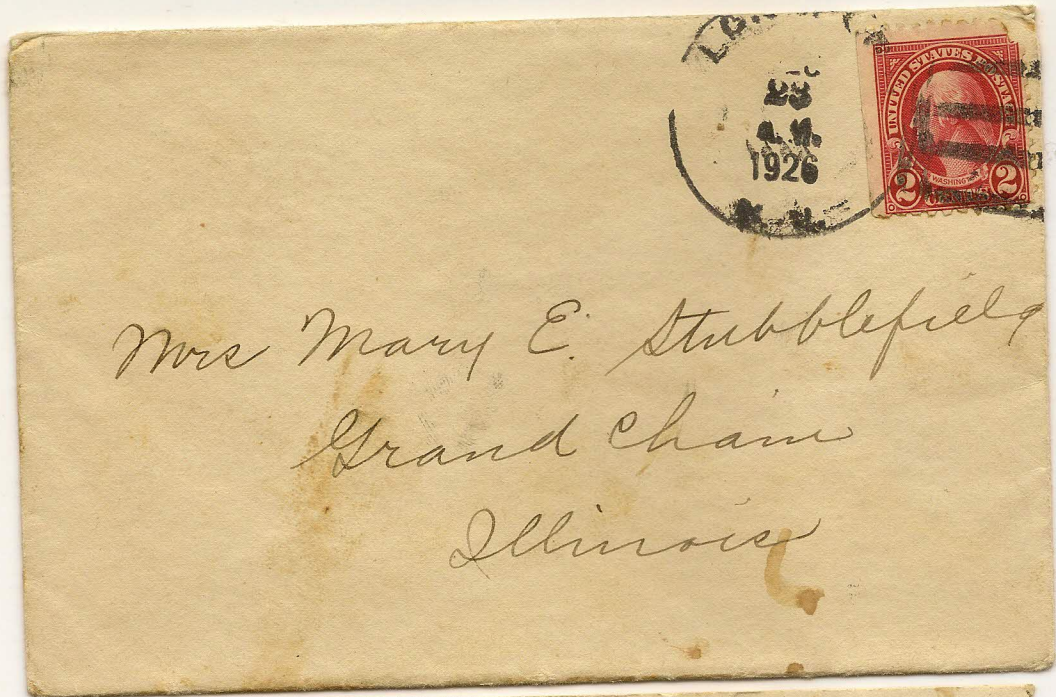 23
A.M.
1926
UNITED STATES POSTAGE
WASHINGTON
2 2
Mrs Mary E. Stubblefield
Grand Chain
Illinois